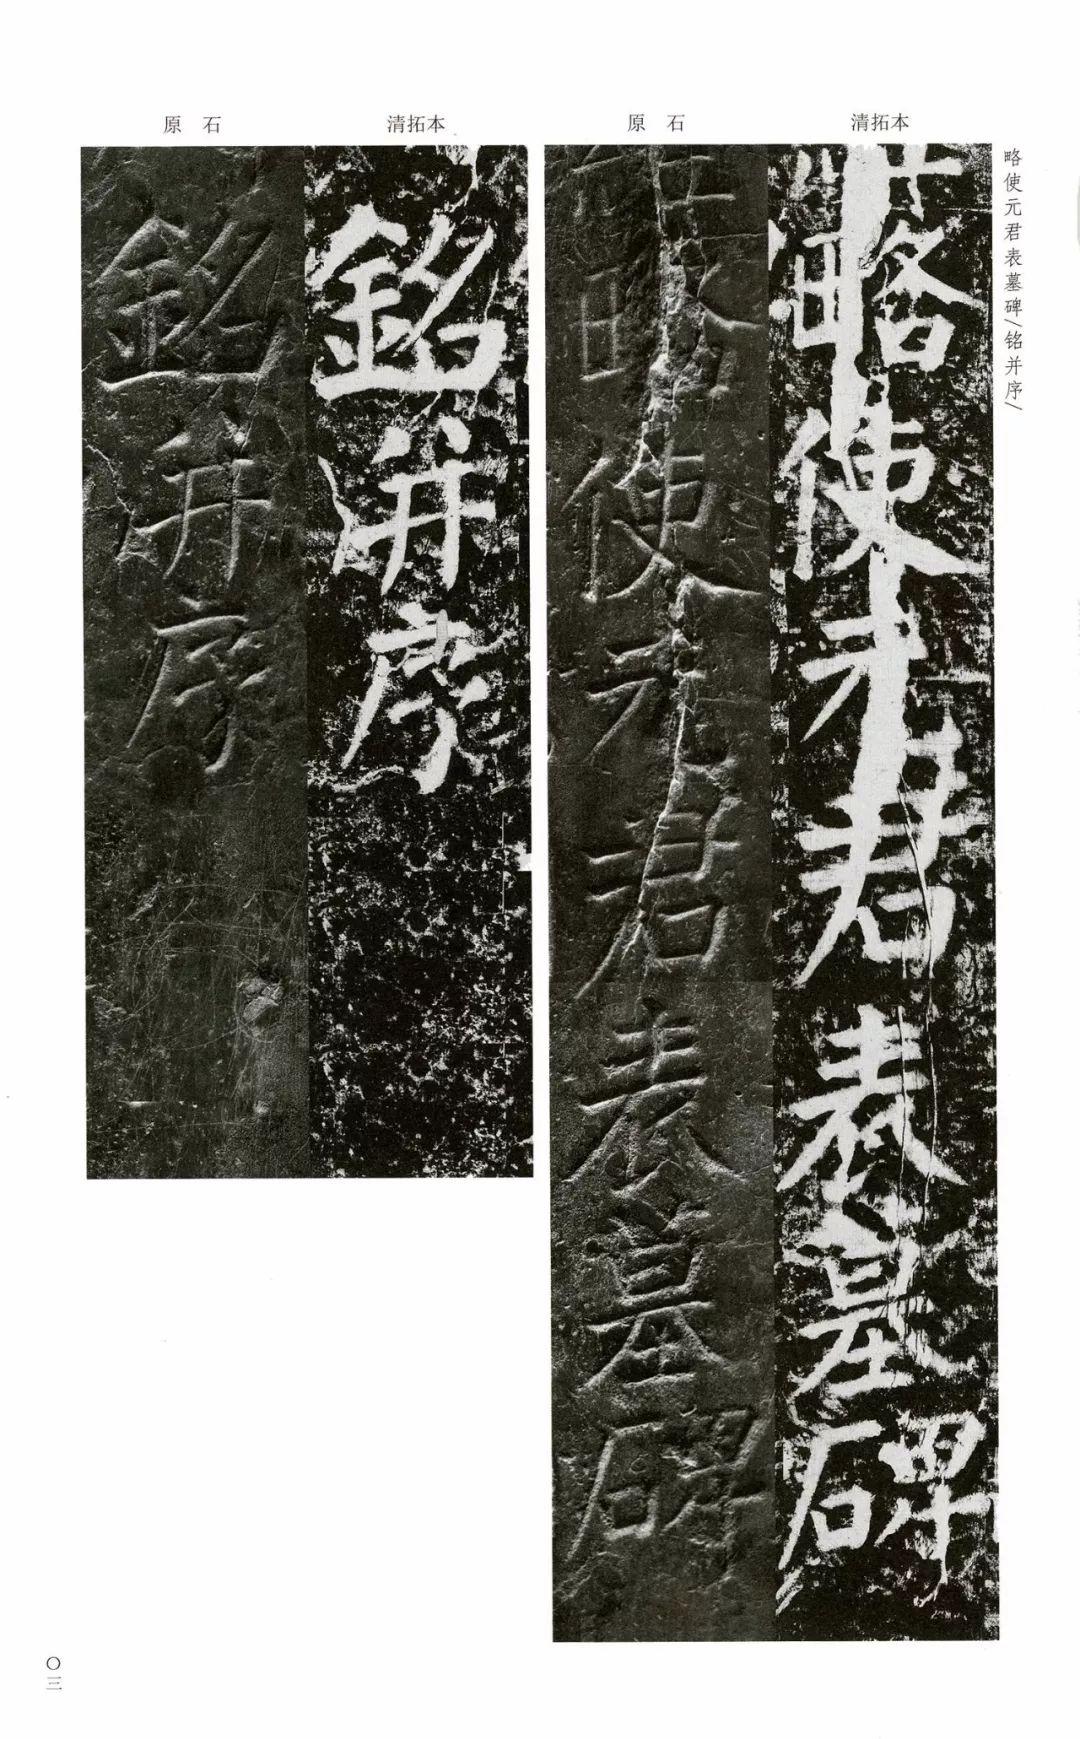 略使元君表墓碑/铭并序/
清拓本
原石
略使元君表墓碑
略使元君表墓碑
清拓本
原石
銘并序
銘并序
〇三